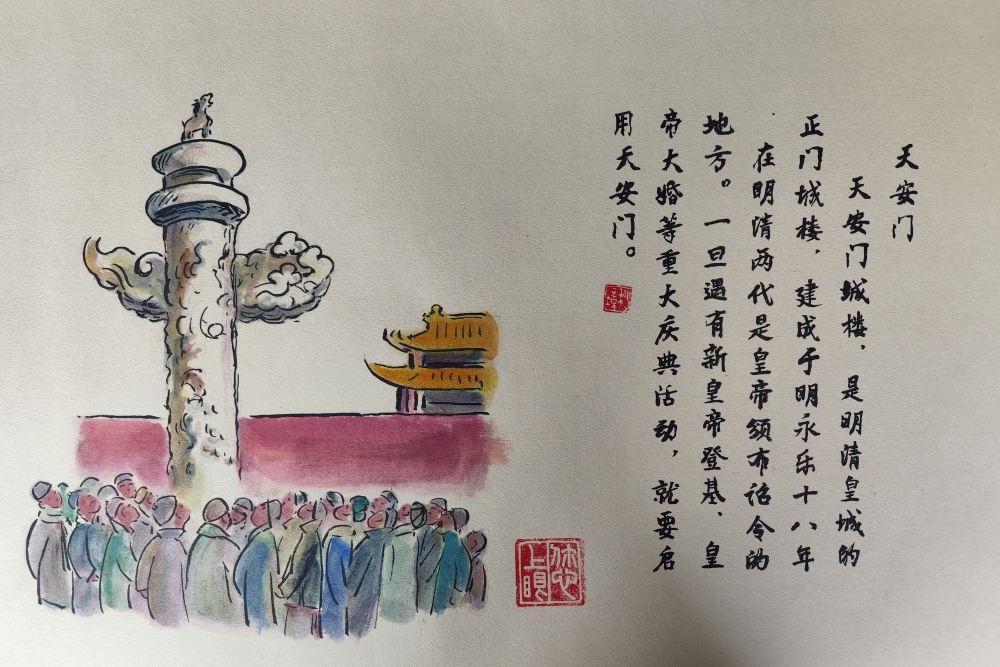 天安门
天安门城楼，是明清皇城的
正门城楼，建成于明永乐十八年
在明清两代是皇帝颁布诏令的
地方。一旦遇有新皇帝登基、皇
帝大婚等重大庆典活动，就要启
用天安门。
上眼